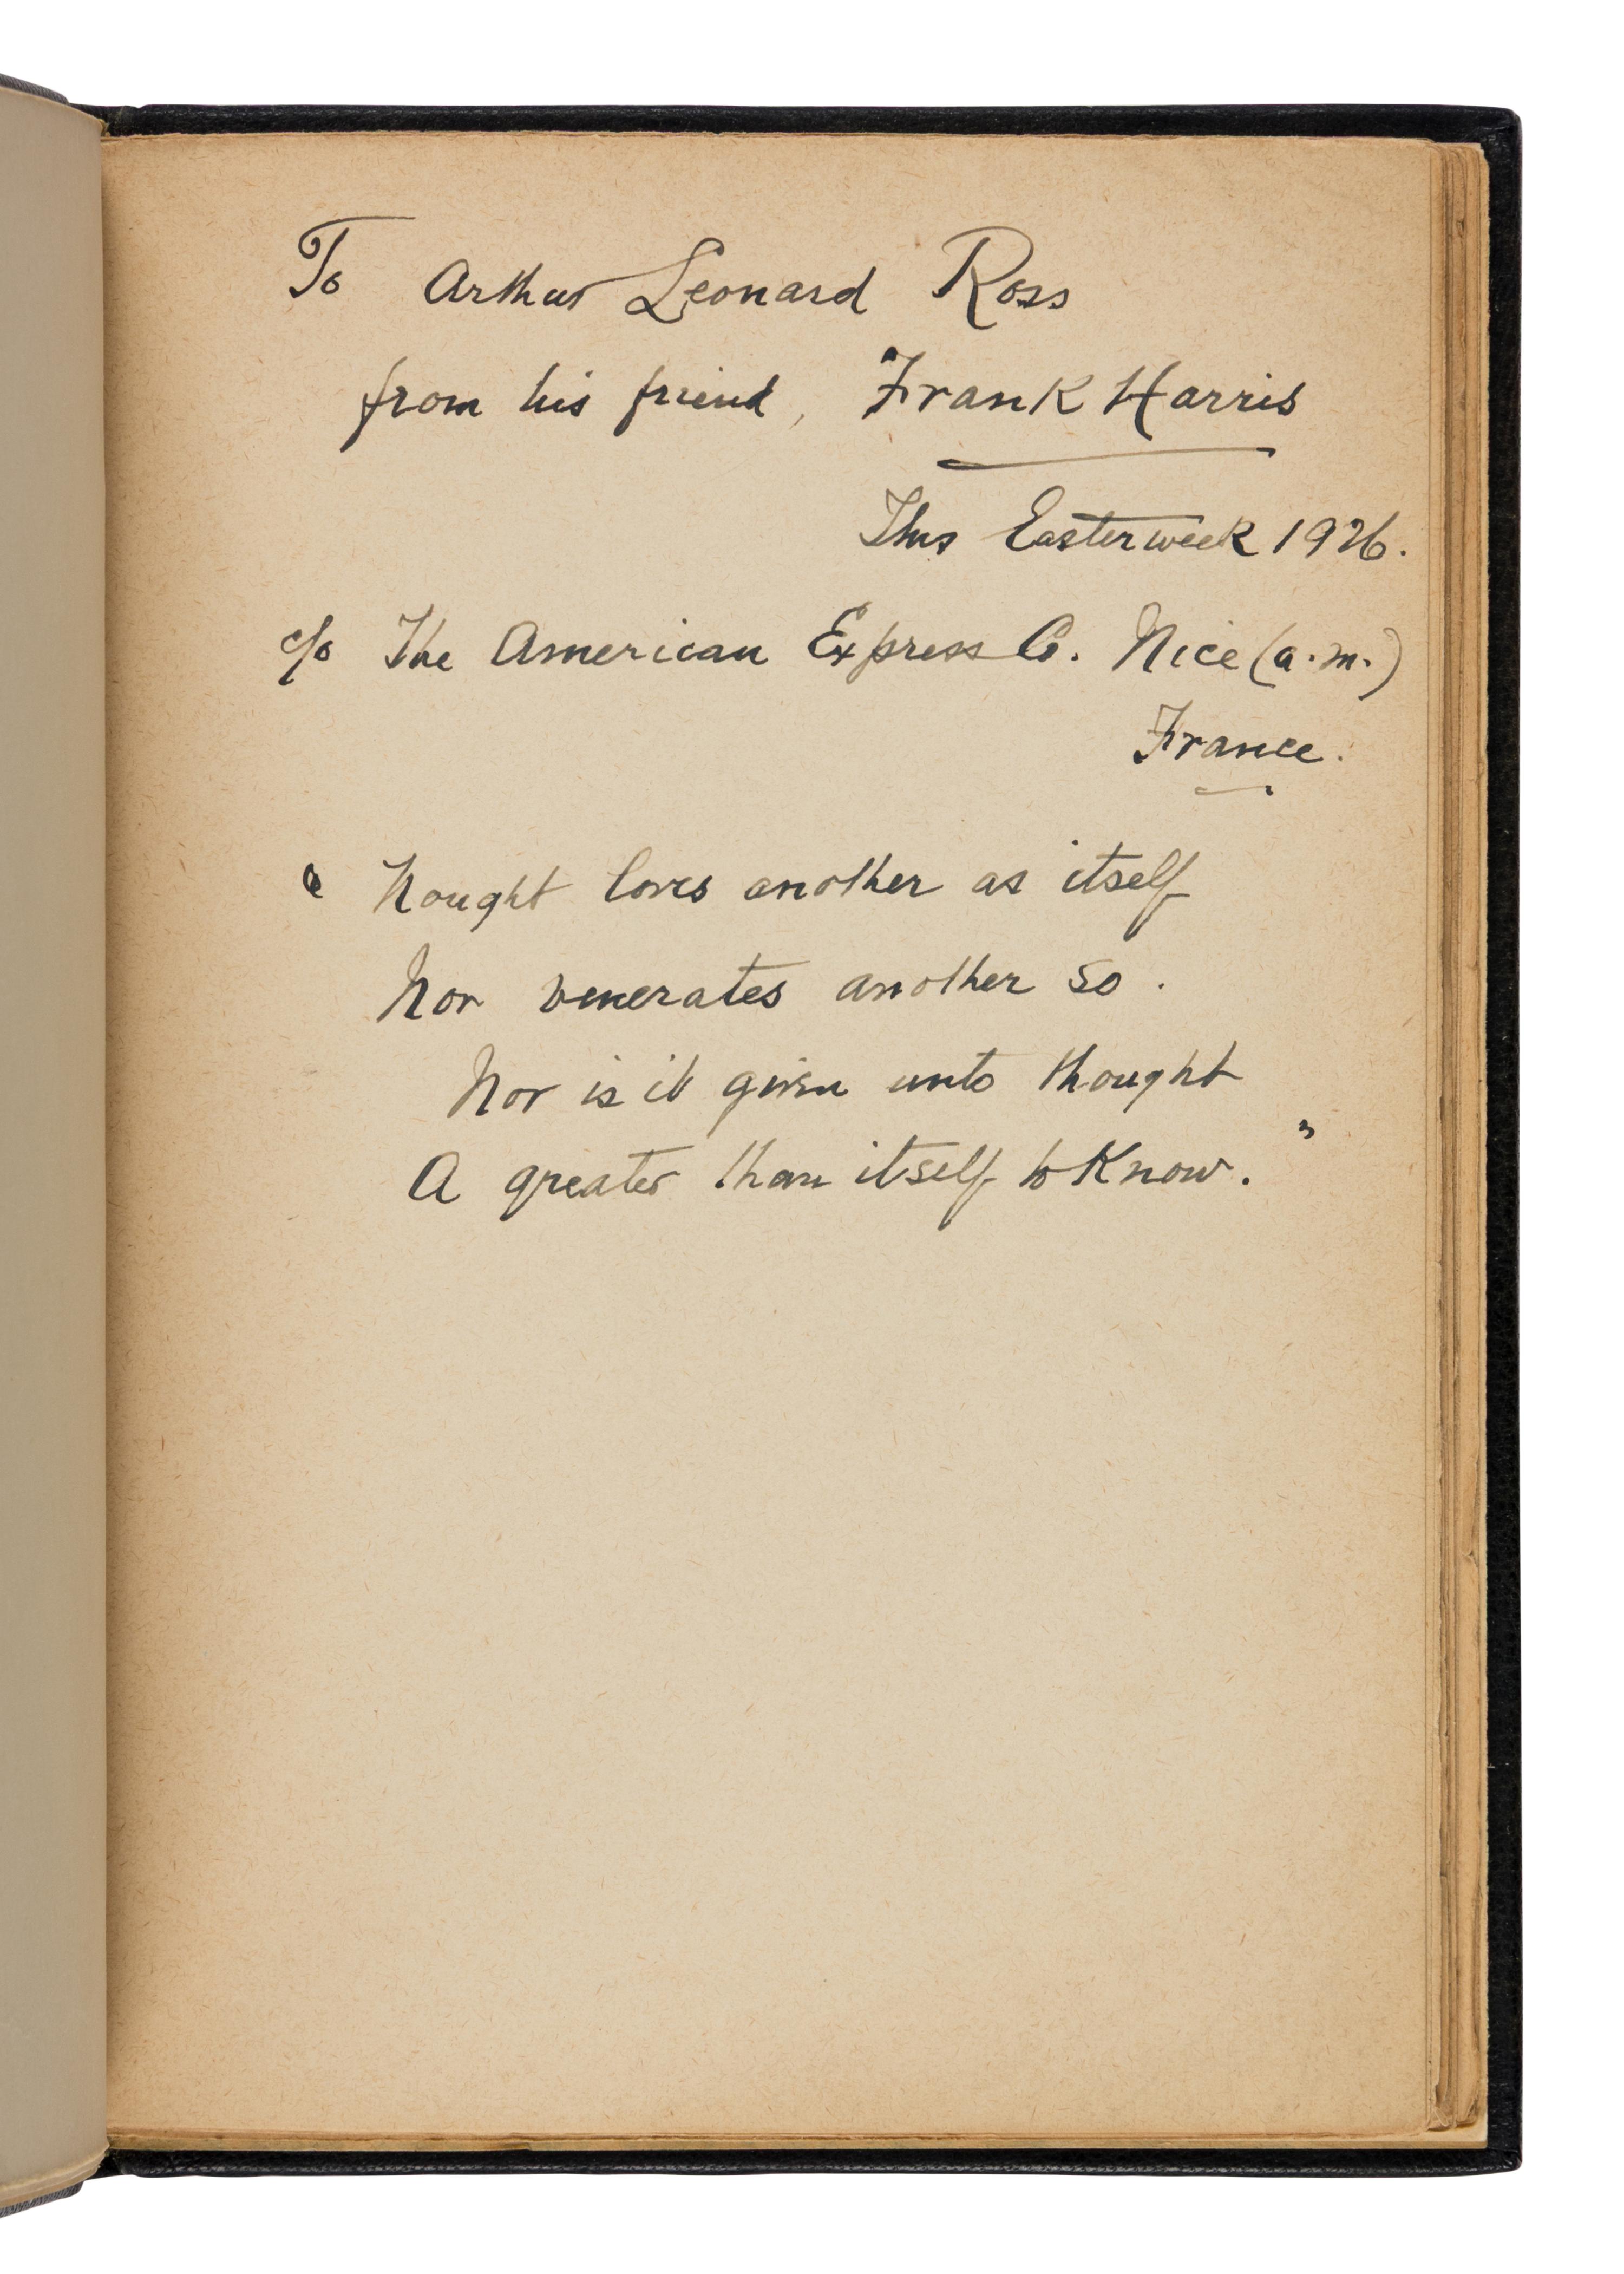 To Arthur Leonard Ross
from his friend, Frank Harris
This Easterweek 1926.
c/o The American Express Co. Nice (a.m.)
France.
" Nought loves another as itself
Nor venerates another so.
Nor is it given unto thought
A greater than itself to Know. "